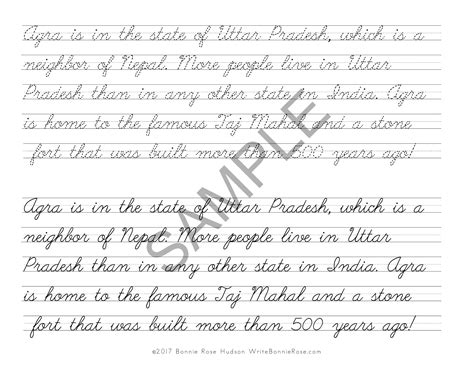 Agra is in the state of Uttar Pradesh, which is a
neighbor of Nepal. More people live in Uttar
Pradesh than in any other state in India. Agra
is home to the famous Taj Mahal and a stone
fort that was built more than 500 years ago!
SAMPLE
Agra is in the state of Uttar Pradesh, which is a
neighbor of Nepal. More people live in Uttar
Pradesh than in any other state in India. Agra
is home to the famous Taj Mahal and a stone
fort that was built more than 500 years ago!
©2017 Bonnie Rose Hudson WriteBonnieRose.com